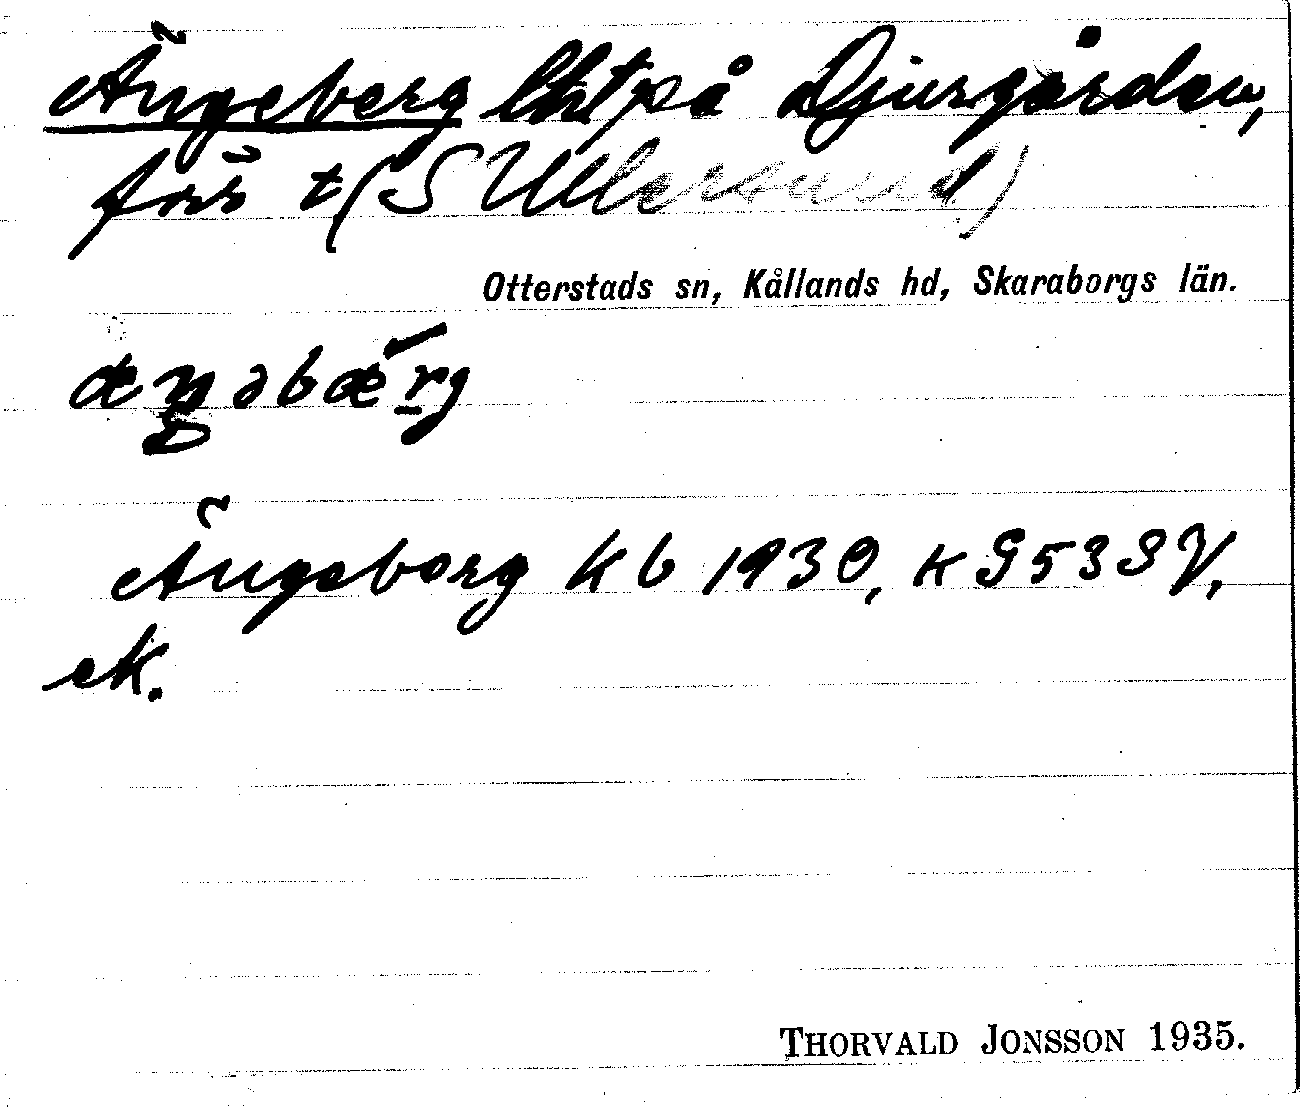 Ängeberg lht på Djurgården,
förs t (S Ullersund)
Otterstads sn, Kållands hd, Skaraborgs län.
æŋəbærg
Ängeborg Kb 1930, K G53SV,
ek.
THORVALD JONSSON 1935.